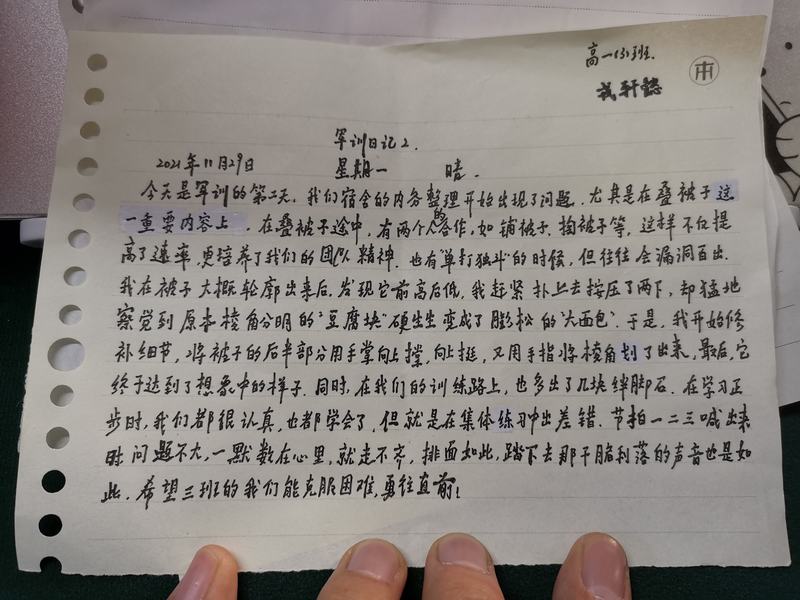 高一(3)班.
轩懿
军训日记2.
2021年11月29日 星期一 晴.
今天是军训的第二天,我们宿舍的内务整理开始出现了问题.尤其是在叠被子这
一重要内容上.在叠被子途中,有两个人的合作,如铺被子,掏被子等,这样不仅提
高了速率,更培养了我们的团队精神.也有“单打独斗”的时候,但往往会漏洞百出.
我在被子大概轮廓出来后,发现它前高后低,我赶紧扑上去按压了两下,却猛地
察觉到原本棱角分明的“豆腐块”硬生生变成了膨松的“大面包”.于是,我开始修
补细节,将被子的后半部分用手掌向上撑,向上挺,又用手指将棱角划了出来,最后,它
终于达到了想象中的样子.同时,在我们的训练路上,也多出了几块绊脚石.在学习正
步时,我们都很认真,也都学会了,但就是在集体练习中出差错.节拍一二三喊出来
时问题不大,一默数在心里,就走不齐,排面如此,踏下去那干脆利落的声音也是如
此.希望三班的我们能克服困难,勇往直前!